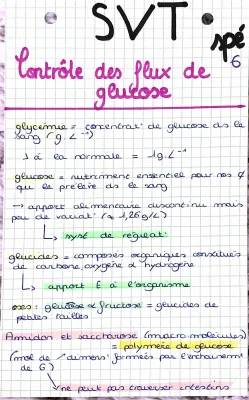 SVT spé
6
Contrôle des flux de
glucose
glycémie = concentrat° de glucose ds le
sang (g.L⁻¹)
à la normale = 1g.L⁻¹
glucose = nutriment essentiel pour nos ¢
qui le prélève ds le sang
→ apport alimentaire discontinu mais
peu de variat° (≈ 1,26g/L)
↳ syst de régulat°
glucides = composés organiques constitués
de carbone, oxygène & hydrogène
↳ apport E à l'organisme
oses : glucose & fructose = glucides de
petites tailles
Amidon et saccharose (macromolécules)
= polymère de glucose
(mol de / dimens° formées par l'enchaînem^t
de G)
↳ ne peut pas traverser intestins